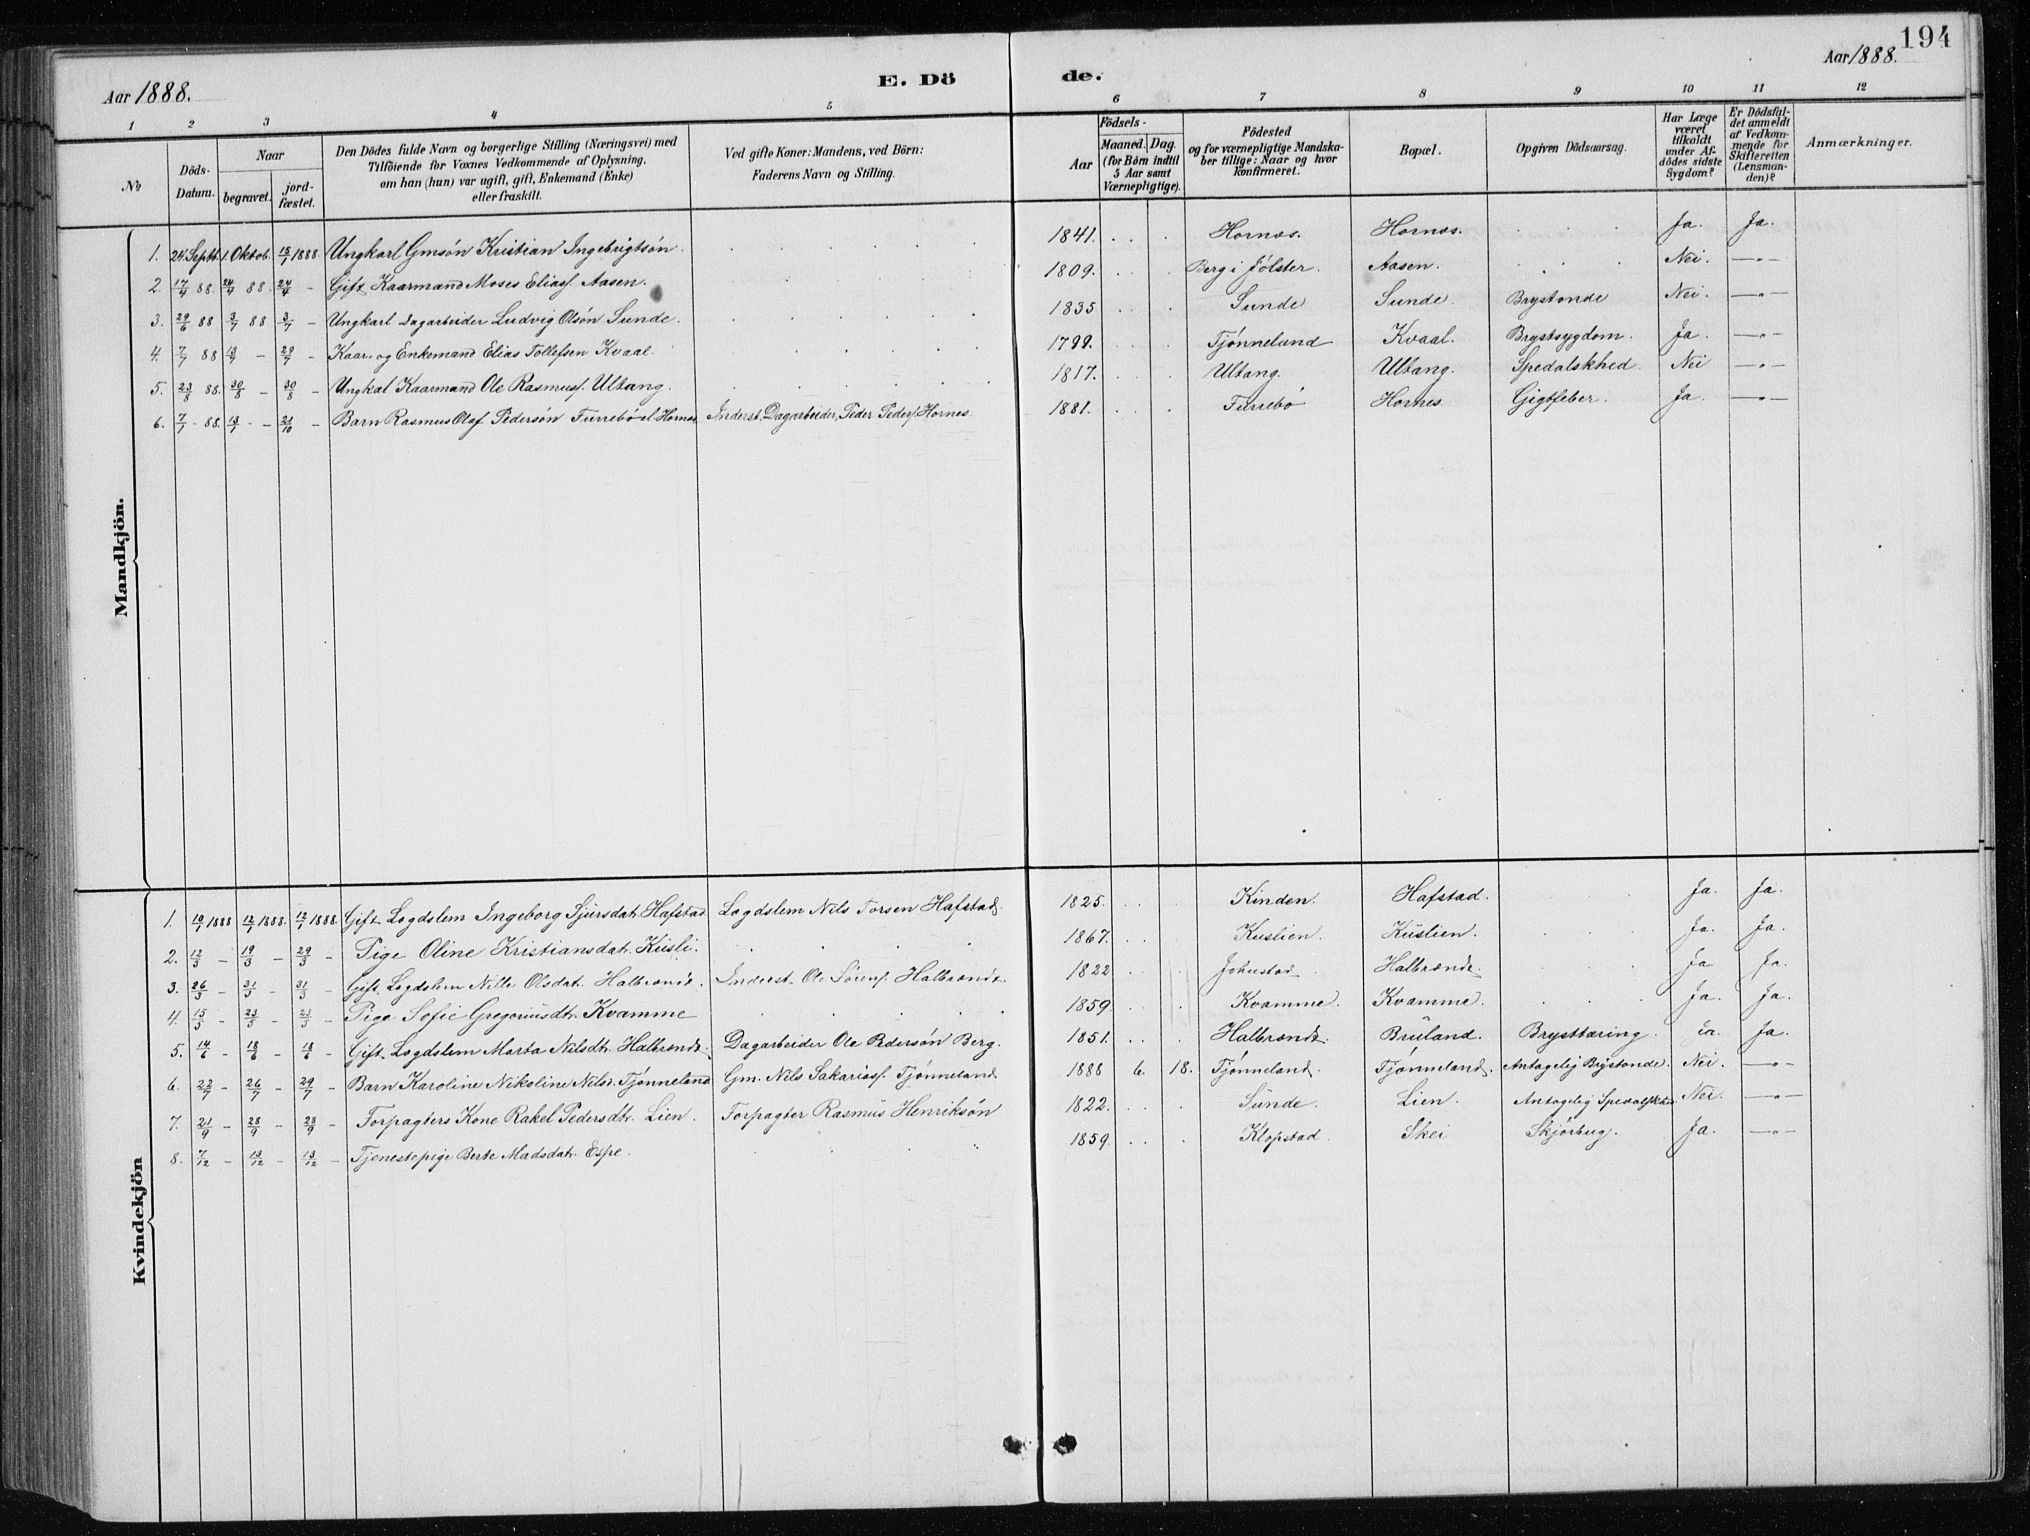 194
Aar 1888. E. Dö de. Aar 1888.
1 2 3 4 5 6 7 8 9 10 11 12
No
Döds-Datum.
Naar
begravet.
jord-fæstet.
Den Dödes fulde Navn og borgerlige Stilling (Næringsvei) med
Tilföiende for Voxnes Vedkommende af Oplysning,
om han (hun) var ugift, gift, Enkemand (Enke)
eller fraskilt.
Ved gifte Koner: Mandens, ved Börn:
Faderens Navn og Stilling.
Födsels-
Aar
Maaned. Dag.
(for Börn indtil
5 Aar samt
Værnepligtige).
Födested
og for værnepligtige Mandska-
ber tillige: Naar og hvor
konfirmeret.
Bopæl.
Opgiven Dödsaarsag.
Har Læge
været
tilkaldt
under Af-
dödes sidste
Sygdom?
Er Dödsfal-
det anmeldt
af Vedkom-
mende for
Skifteretten
(Lensman-
den)?
Anmærkninger.
Mandkjön.
1. 24 Septb. 1 Oktob. 15/1 1888. Ungkarl Gmsön Kristian Ingebrigtsön. 1841. Hornes. Hornes. Ja. Ja.
2. 17/4 88. 24/4 88. 24/4 - Gift Kaarmand Moses Eliass. Aasen. 1809. Berg i Jølster. Aasen. Nei. —"—
3. 29/6 88 3/7 88 3/7 - Ungkarl Dagarbeider Ludvig Olsön Sunde. 1835 Sunde Sunde. Brystonde Nei. —"—
4. 7/7 88 13/7 - 29/7 - Kaar. og Enkemand Elias Tollefsen Kvaal. 1799. Tjønneland Kvaal. Brystsygdom. Ja. —"—
5. 23/8 88. 30/8 - 30/8 - Ungkal Kaarmand Ole Rasmuss. Ultang. 1817. Ultang. Ultang. Spedalskhed. Nei —"—
6. 7/1 - 88. 13/1 - 21/10 - Barn Rasmus Olaf Pedersön Furrebö el Hornes Inderst, Dagarbeider, Peder Peders. Hornes. 1881. Furrebö Hornes Gigtfeber. Ja. —"—
Kvindekjön
1. 10/1 1888 12/1 1888. 12/1 1888. Gift Logdslem Ingeborg Sjursdat. Hafstad. Logdslem Nils Torsen Hafstad. 1825. Kinden. Hafstad. Ja. Ja.
2. 12/3 - 19/3 - 29/3 - Pige Oline Kristiansdat. Kusli. 1867. Kuslien. Kuslien. Ja. Ja.
3. 26/3 - 31/3 - 31/3 - Gift Logdslem Nille Olsdat. Halbrendt. Inderst Ole Sørens. Halbrendt. 1822 Johnstad Halbrendt. Ja Ja.
4. 15/5 - 23/5 - 23/5 - Pige Sofie Gregoriusdtr. Kvamme 1859. Kvamme. Kvamme. Ja. Ja.
5. 14/6 - 18/6 - 18/6 - Gift Logdslem Marta Nilsdtr. Halbrendt. Dagarbeider Ole Pedersön Berg. 1851. Halbrendt. Bruland. Brysttæring. Ja. Ja.
6. 22/7 - 26/7 - 29/7 - Barn Karoline Nikoline Nilsd. Tjønneland Gm. Nils Sakariass. Tjønneland 1888 6. 18. Tjønneland. Tjønneland. Antagelig Brystonde. Nei. —"—
7. 21/9 - 28/9 - 28/9 - Forpagters Kone Rakel Pedersdtr. Lien. Forpagter Rasmus Henriksön 1822. Sunde. Lien. Antagelig Spedalskhed Nei. —"—
8. 7/12 - 13/12 - 13/12 - Tjenestepige Berte Madsdat. Espe. 1859. Klopstad. Skei Skjørbug. Ja. —"—